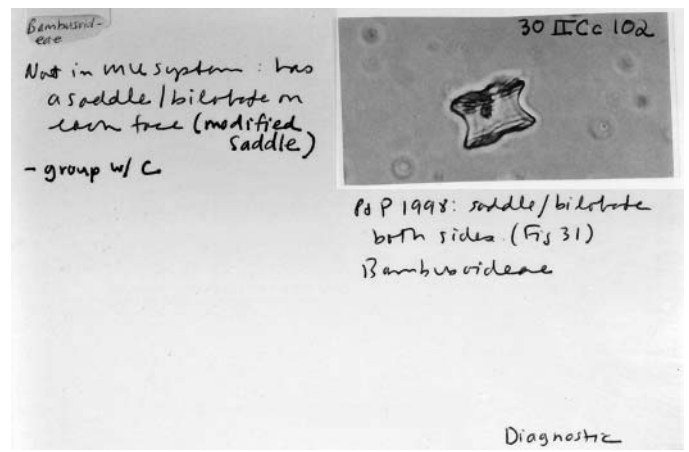 Bambusoid-
eae
Not in MU system: has
a saddle/bilobate on
each face (modified
saddle)
- group w/ C
30 IICc 102
P&P 1998: saddle/bilobate
both sides. (Fig 31)
Bambusoideae
Diagnostic